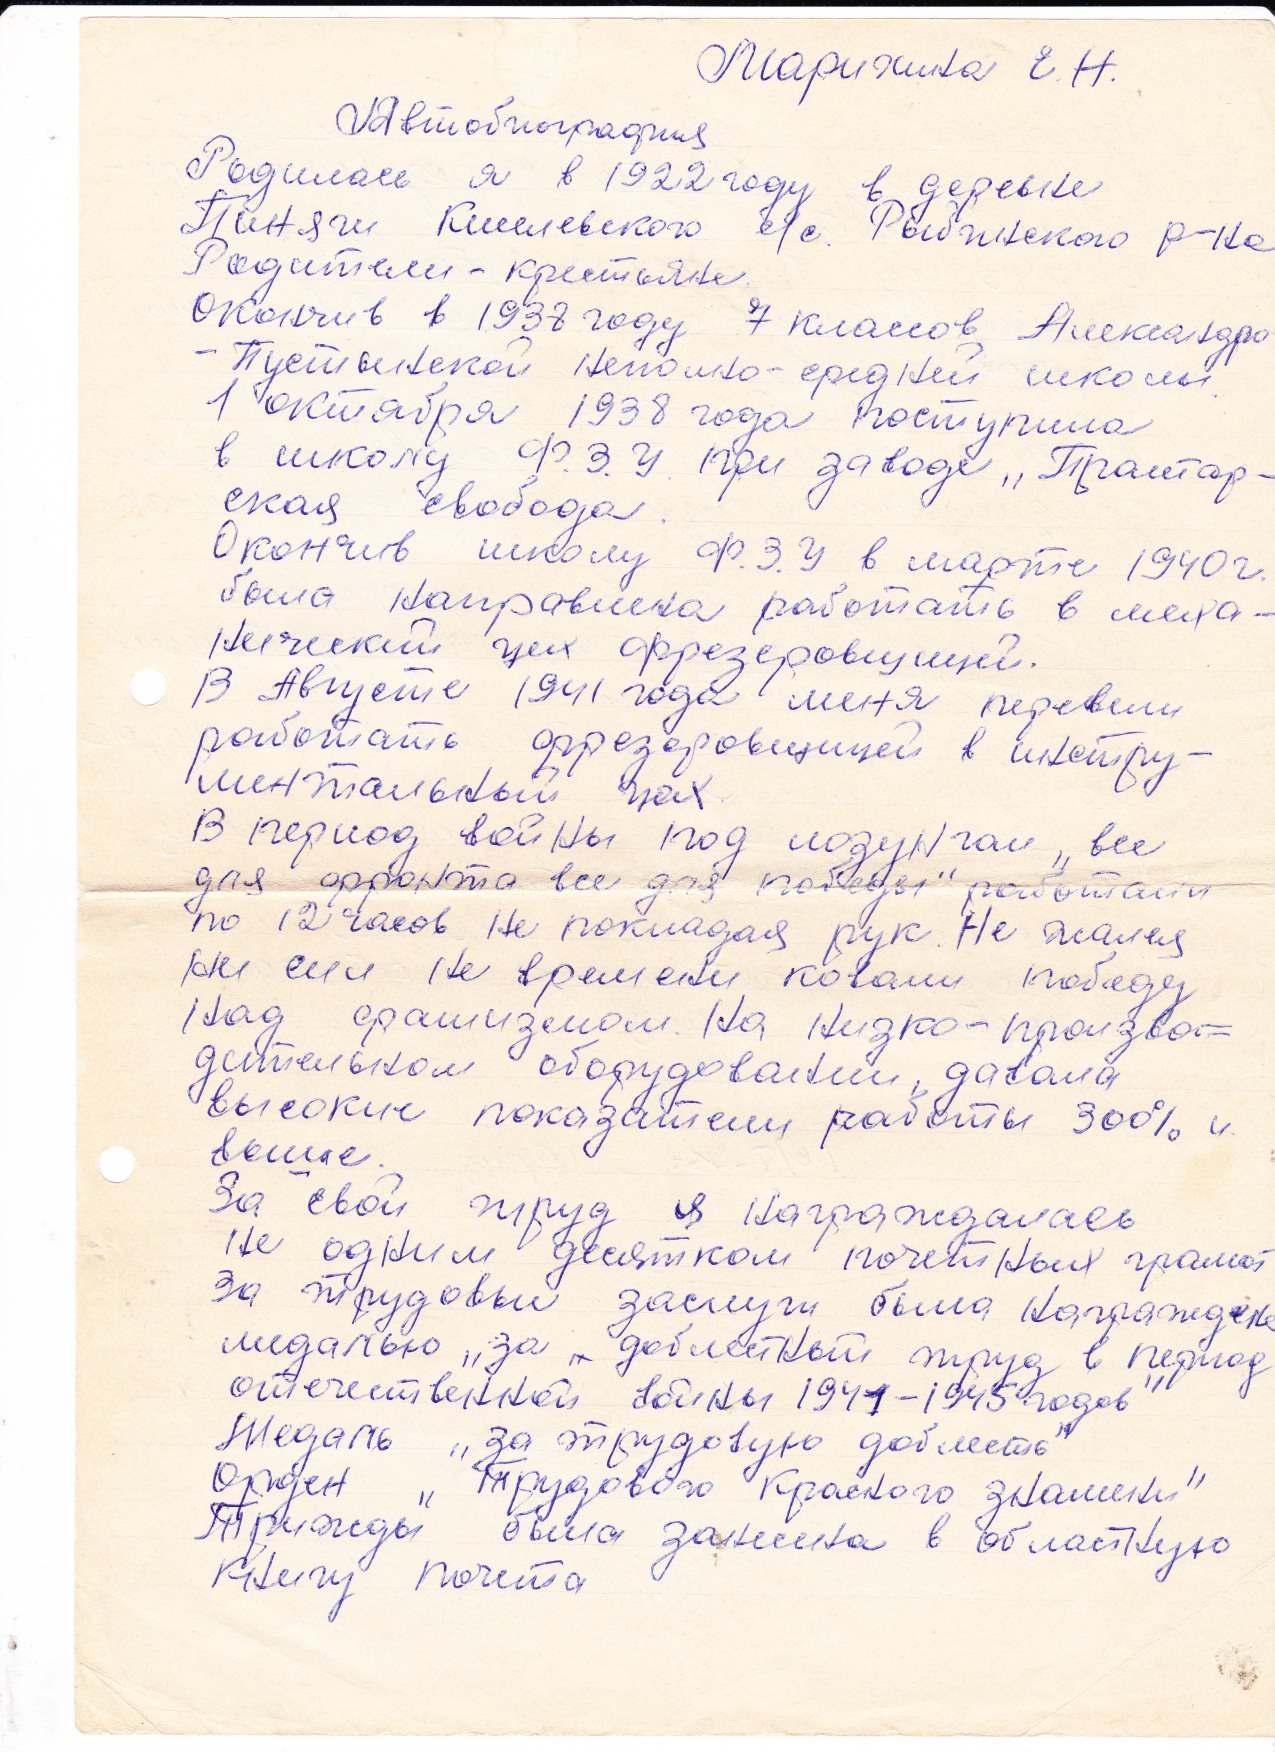 Марихина Е.Н.
Автобиография
Родилась я в 1922 году в деревне
Пиняги Киселевского с/с. Рыбинского р-на
Родители - крестьяне.
Окончив в 1938 году 7 классов Александро
- Пустынской неполно-средней школы.
1 октября 1938 года поступила
в школу Ф.З.У. при заводе „Пролетар-
ская свобода.
Окончив школу Ф.З.У в марте 1940 г.
была направлена работать в меха-
нический цех фрезеровщицей.
В Августе 1941 года меня перевели
работать фрезеровщицей в инстру-
ментальный цех.
В период войны под лозунгом „все
для фронта все для победы" работали
по 12 часов не покладая рук. Не жалея
ни сил не времени ковали победу
над фашизмом. На низко-произво-
дительном оборудовании, давала
высокие показатели работы 300% и
выше.
За свой труд я награждалась
не одним десятком почетных грамот
За трудовые заслуги была награждена
медалью „за „ доблестный труд в период
отечественной войны 1941-1945 годов"
Медаль „за трудовую доблесть"
Орден „ Трудового Красного знамени"
Трижды была занесена в областную
Книгу почета